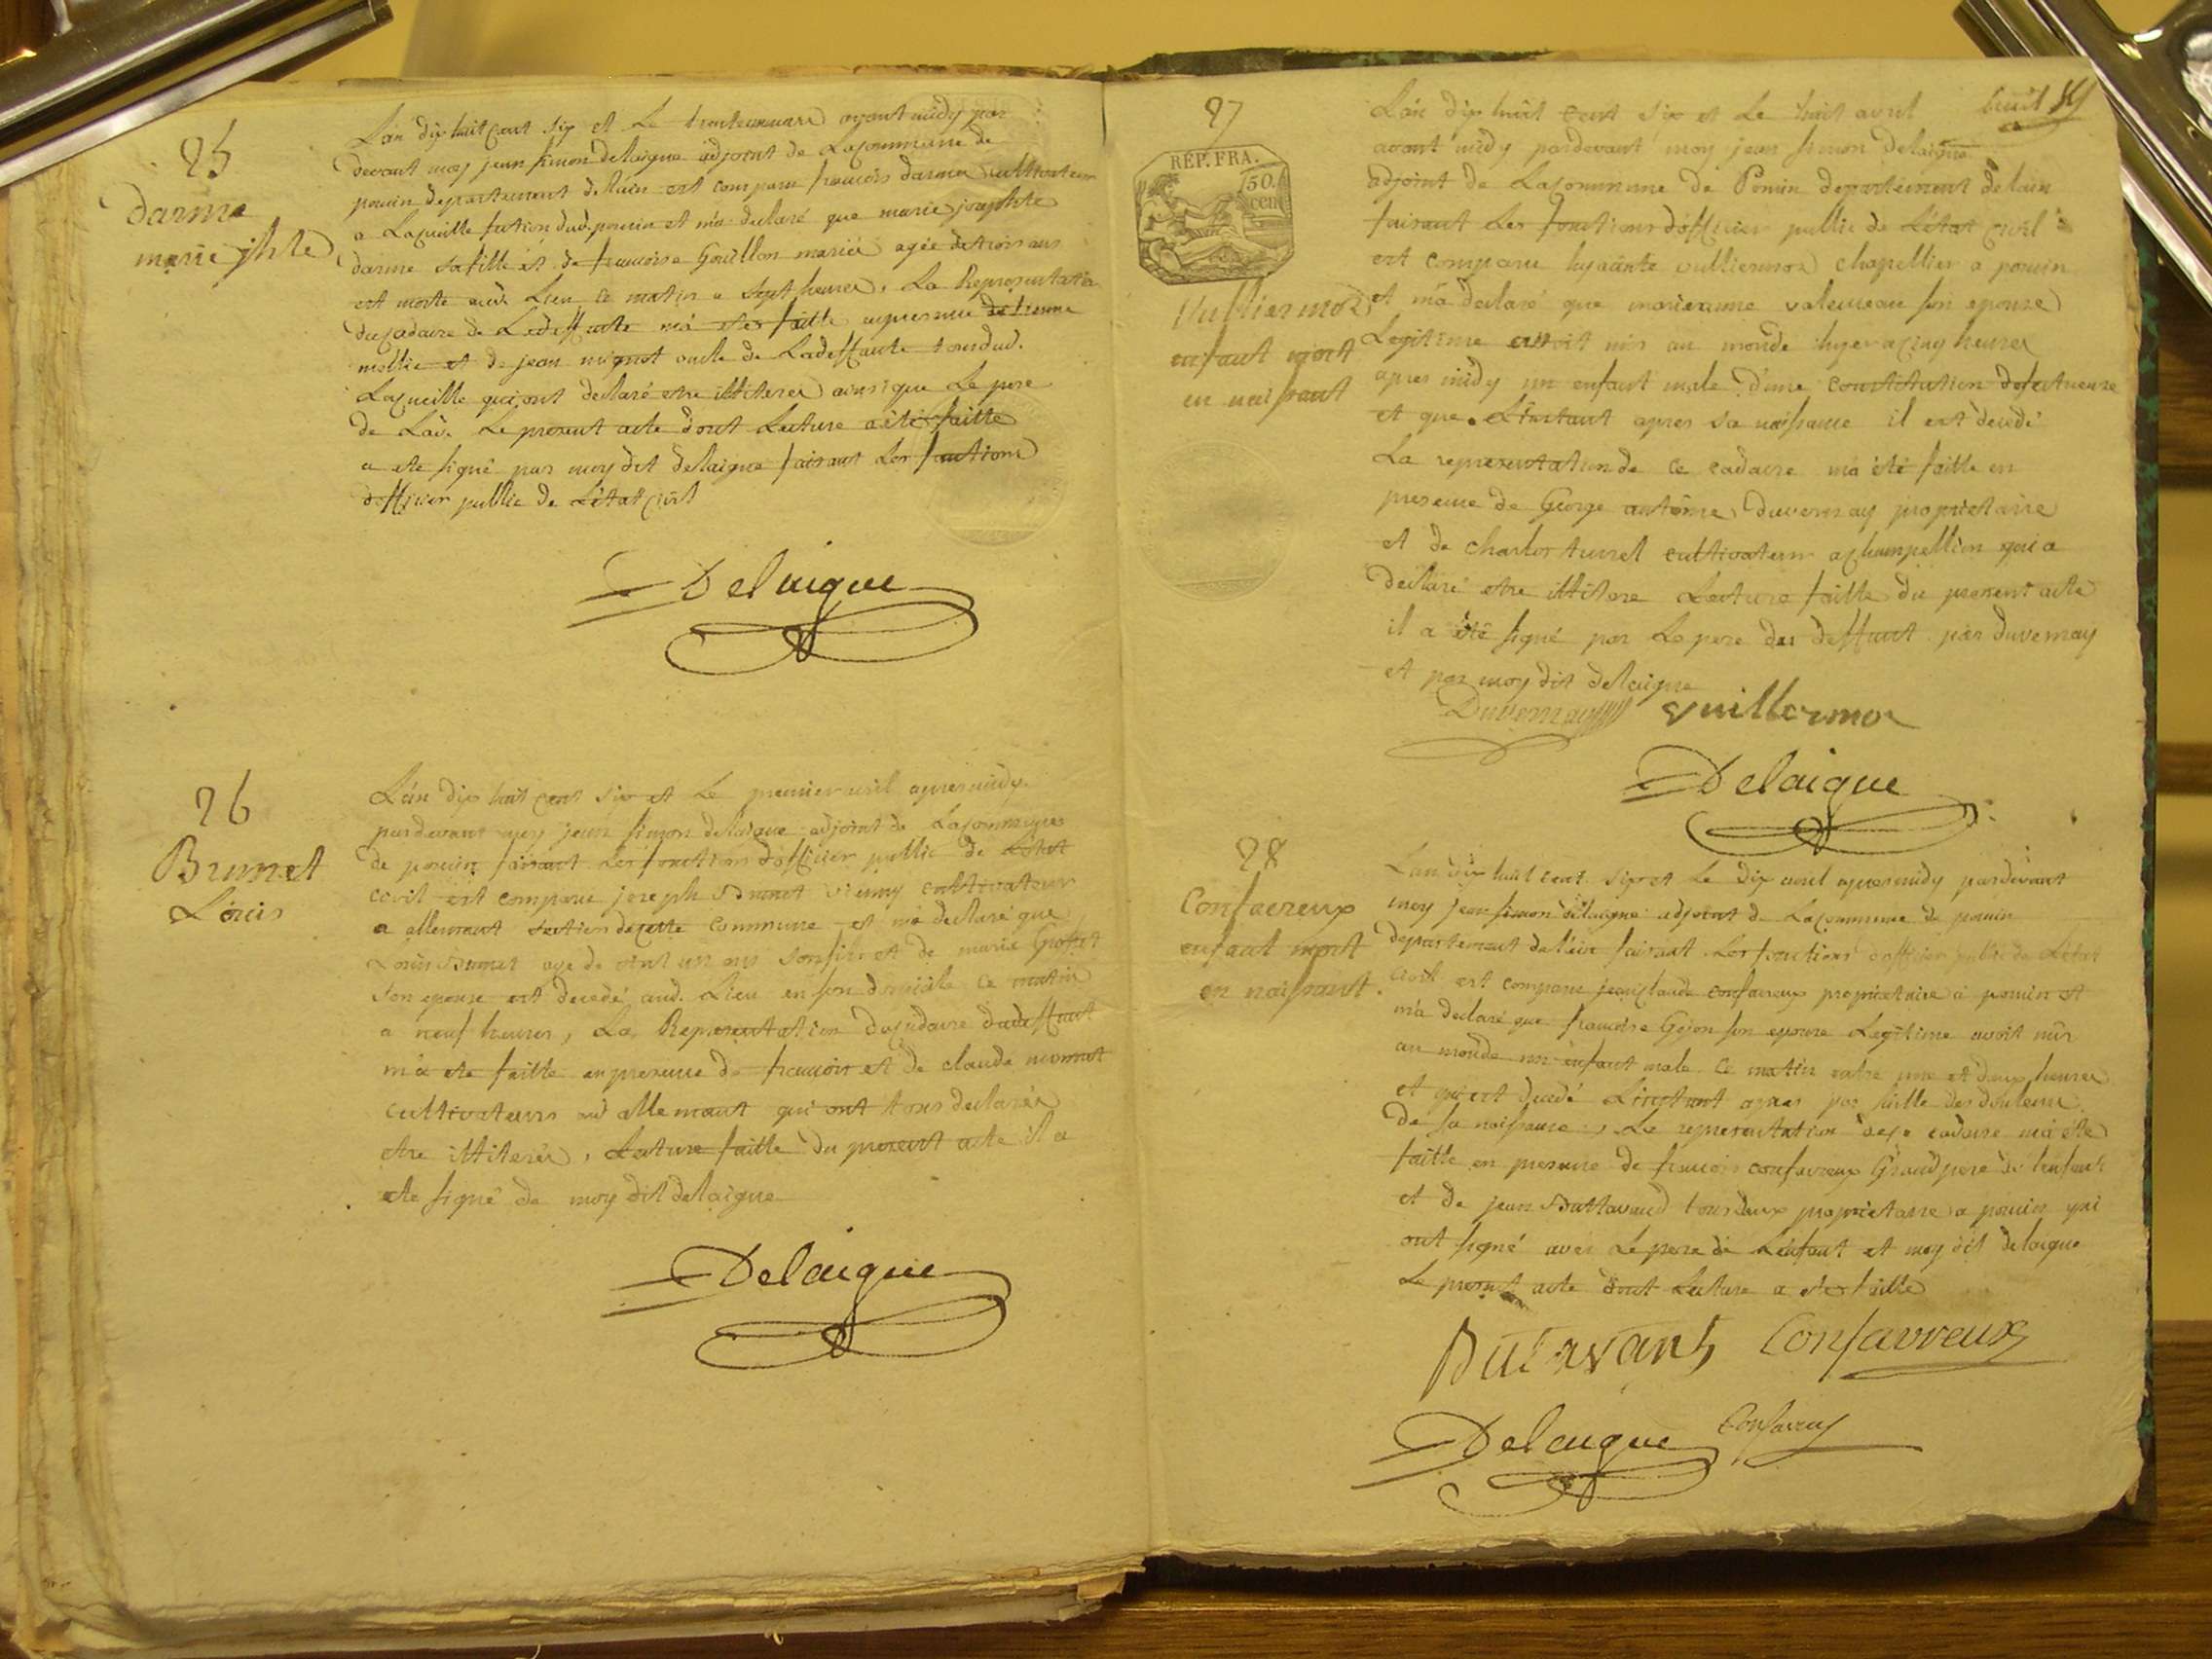 25
Darme
marie jhte
L'an dix huit cent six et Le trente mars avant midy par
devant moy jean simon delaigue adjoint de Lacommune de
poncin departement delain est comparu francois darme cultivateur
a Lacueille section dud. poncin et m'a declaré que marie josephte
darme sa fille et de francoise Gouillon mariée agée de trois ans
est morte aud. Lieu ce matin a sept heures. La Representation
ducadavre de Ladeffunte m'a ete faitte en presence de
et de jean mignot oncle de Ladeffunte tous dud.
Lacueille qui ont declaré etre illiterés ainsi que Le pere
de La d. Le present acte dont Lecture a été faitte
a ete signé par moy dit delaigue faisant Les fonctions
dofficier public de L'état civil
Delaigue
26
Brunet
Louis
L'an dix huit cent six et Le premier avril apres midy.
pardevant moy jean simon delaigue adjoint de Lacommune
de poncin faisant Les fonctions d'officier public de L'état
civil est comparu joseph Brunet cultivateur
a allement section de cette commune et m'a declaré que
Louis Brunet agé de vint un ans son fils et de marie
son epouse est decedé aud. Lieu en son domicile ce matin
a neuf heures, La Representation ducadavre dudeffunt
m'a ete faitte en presence de francois et de claude monnet
cultivateurs aud allemant qui ont tous declarés
etre illiterés, Lecture faitte du present acte il a
ete signé de moy dit delaigue
Delaigue
27
REP. FRA.
50.
cen
Vulliermoz
enfant mort
en naissant
huit 89
L'an dix huit cent six et Le huit avril
avant midy pardevant moy jean simon delaigue
adjoint de Lacommune de Poncin departement delain
faisant Les fonctions d'officier public de L'état civil
est comparu hyacinte vulliermoz chapellier a poncin
et m'a declaré que marieanne valenceau son epouse
Legitime avoit mis au monde hyer a cinq heures
apres midy un enfant male d'une constitution defectueuse
et que L'instant apres sa naissance il est decedé
La representation de ce cadavre m'a été faitte en
presence de George antoine Duvernay proprietaire
et de charles turrel cultivateur a champellion qui a
declaré etre illitere Lecture faitte du present acte
il a été signé par Le pere du deffunt par duvernay
et par moy dit delaigue
Duvernay vuillermoz
Delaigue
28
Confavreux
enfant mort
en naissant.
L'an dix huit cent six et Le dix avril apres midy pardevant
moy jean simon delaigue adjoint de Lacommune de poncin
departement de l'ain faisant Les fonctions d'officier public de L'état
civil est comparu jean claude confavreux proprietaire a poncin et
m'a declaré que francoise Gojon son epouse Legitime avoit mis
au monde un enfant male ce matin entre une et deux heures
et qui est decedé L'instant apres par suitte des douleurs
de sa naissance, La representation de ce cadavre m'a ete
faitte en presence de francois confavreux Grand pere de lenfant
et de jean Buttavand tous deux proprietaire a poncin qui
ont signé avec Le pere de L'enfant et moy dit delaigue
Le present acte dont Lecture a ete faitte
Butavant Confavreux
Delaigue Confavreux